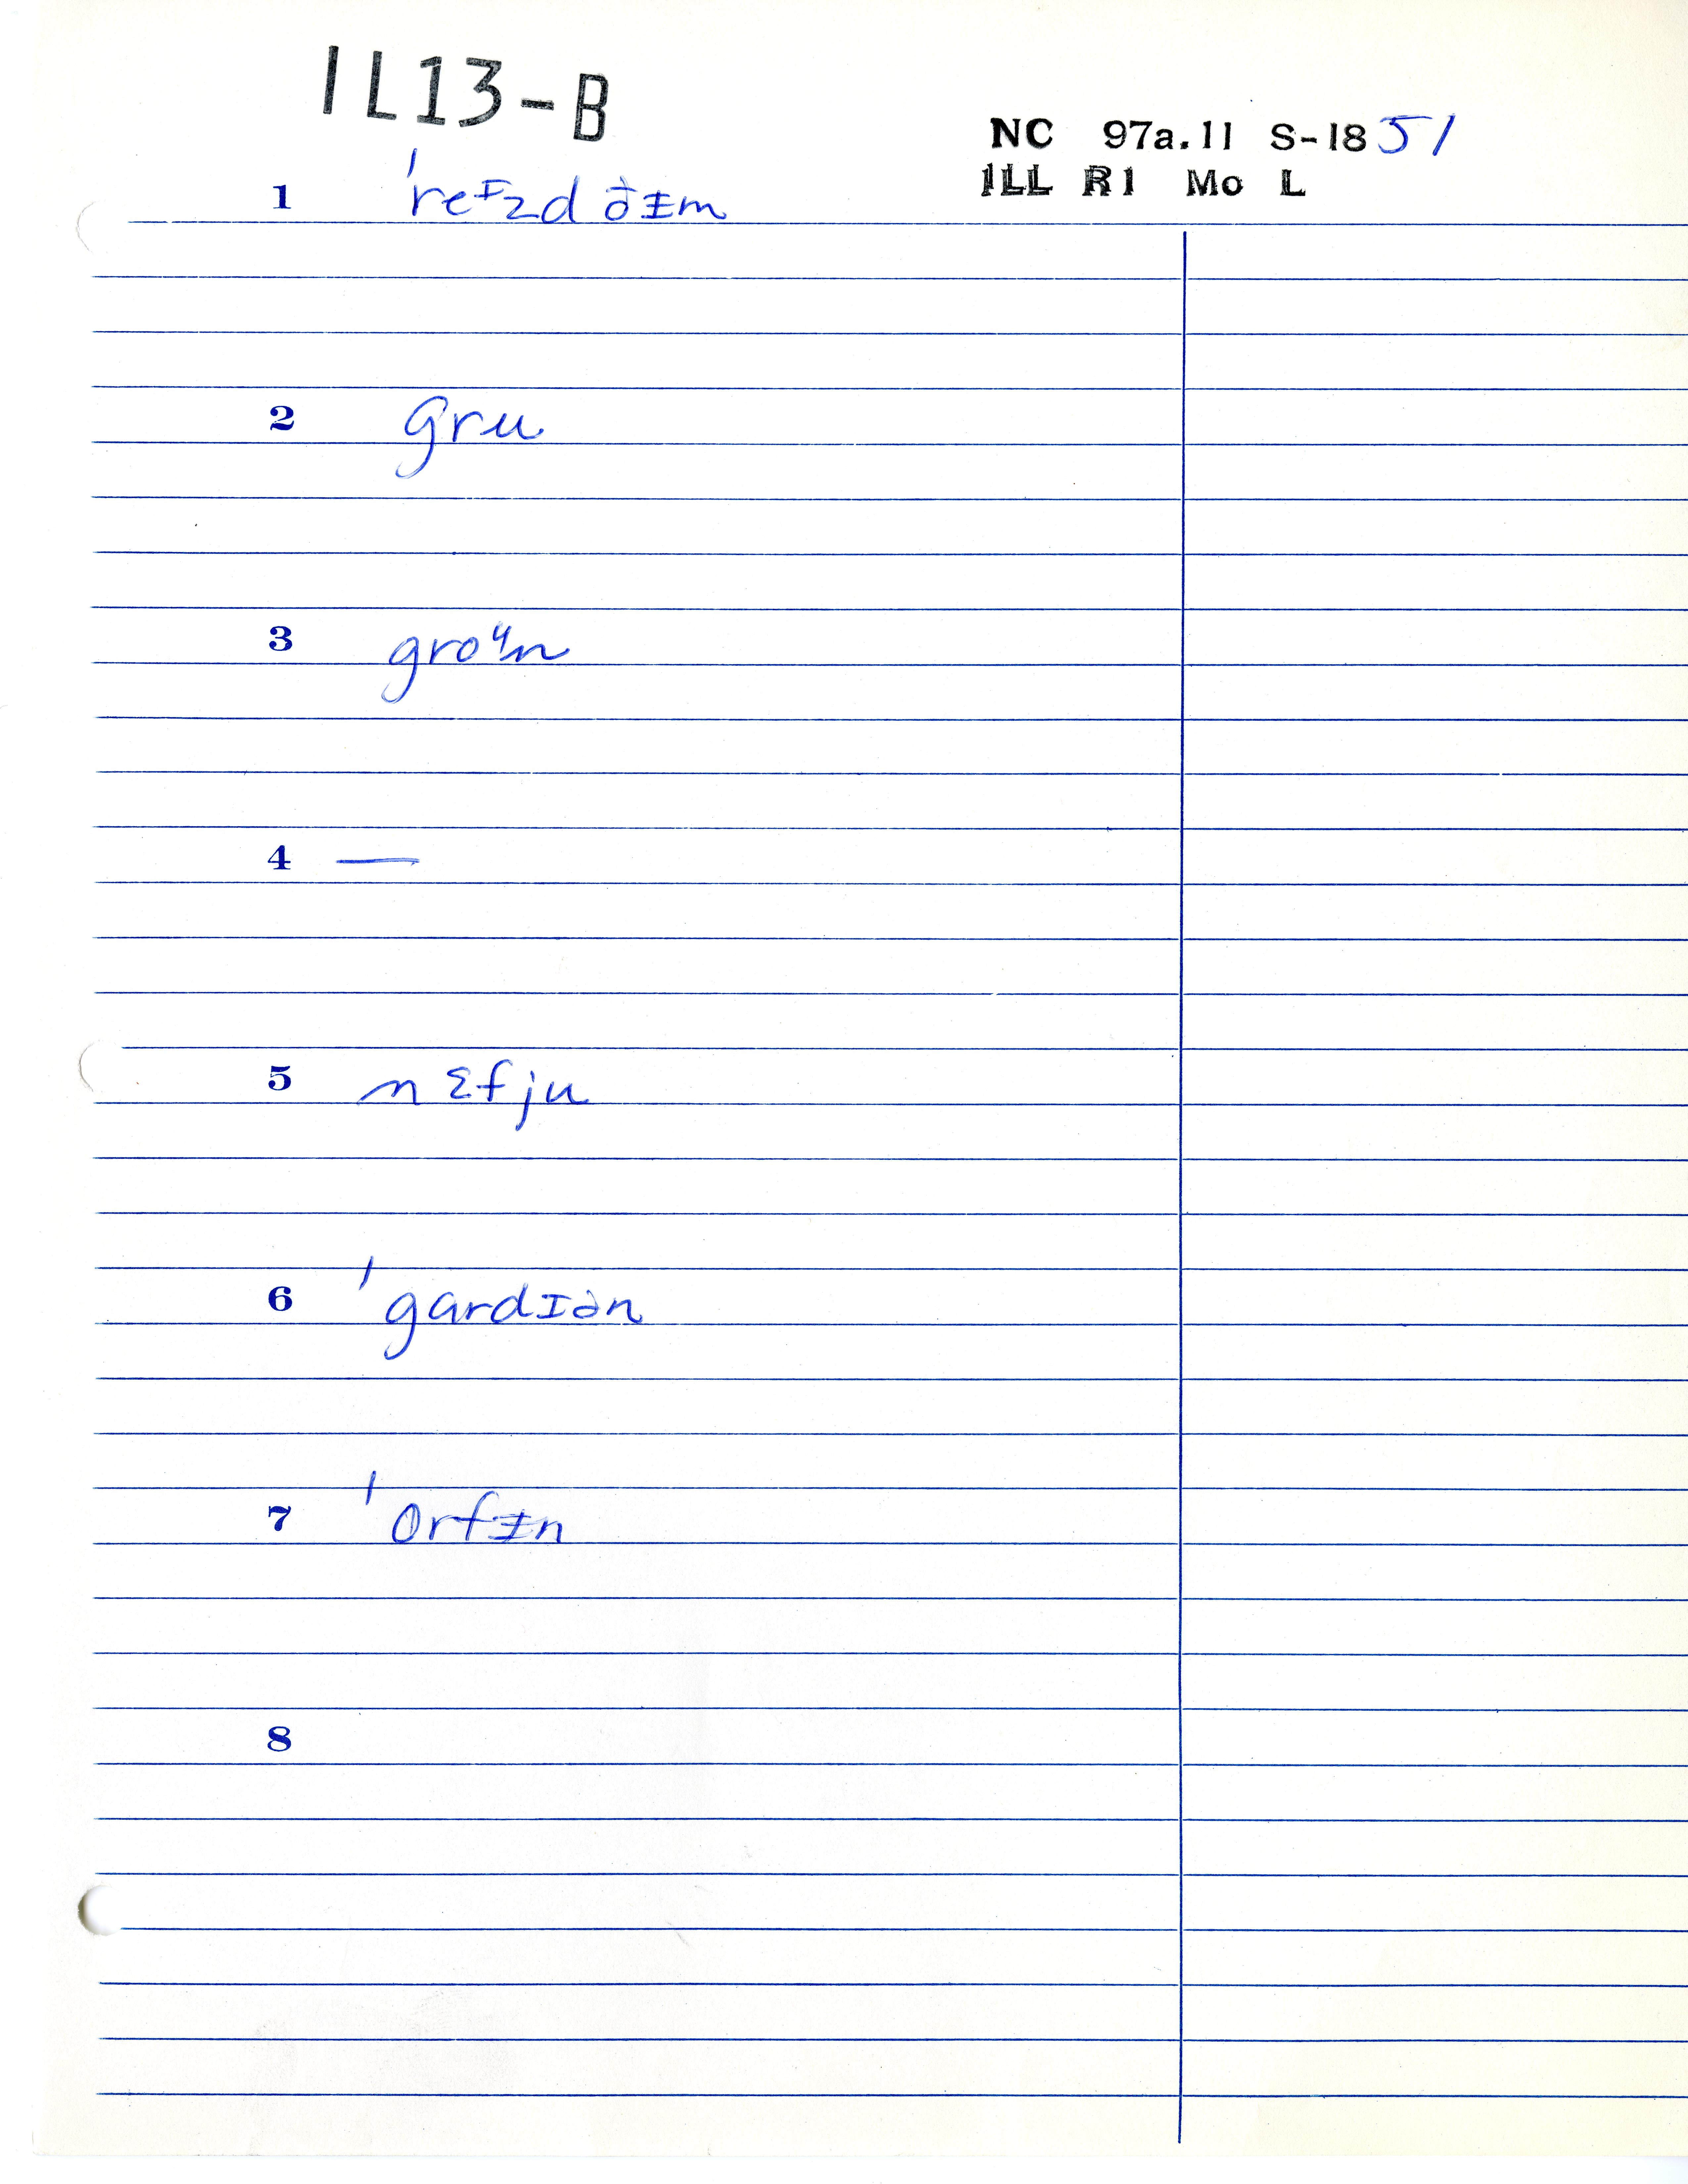 IL13-B
NC 97a.11 S-1851
ILL R1 Mo L
1 ˈreᵻzd ðᵻm
2 gru
3 groᶣn
4 —
5 nɛfju
6 ˈgɑrdɪən
7 ˈorfᵻn
8